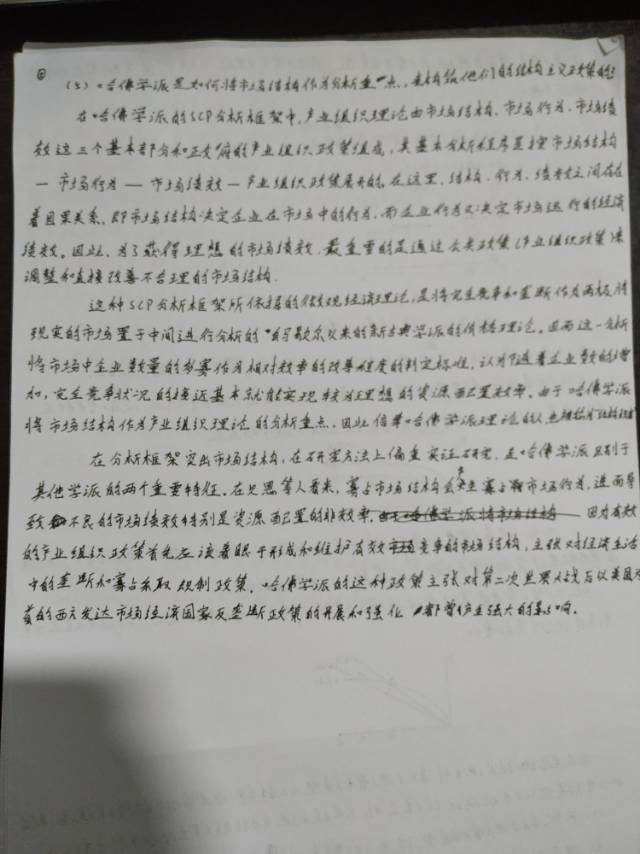 ④
(3) 哈佛学派是如何将市场结构作为分析重点,来构筑他们的结构主义政策的?
在哈佛学派的SCP分析框架中,产业组织理论由市场结构、市场行为、市场绩
效这三个基本部分和政府的产业组织政策组成,其基本分析程序是按市场结构
—市场行为—市场绩效—产业组织政策展开的。在这里,结构、行为、绩效之间存在
着因果关系,即市场结构决定企业在市场中的行为,而企业行为又决定市场运行的经济
绩效。因此,为了获得理想的市场绩效,最重要的是通过公共政策(产业组织政策)来
调整和直接改善不合理的市场结构.
这种SCP分析框架所依据的微观经济理论,是将完全竞争和垄断作为两极,将
现实的市场置于中间进行分析的 以来的新古典学派的价格理论。因而这一分析
将市场中企业数量的多寡作为相对效率的改善程度的判定标准,认为随着企业数的增
加,完全竞争状况的接近基本就能实现较为理想的资源配置效率。由于哈佛学派
将市场结构作为产业组织理论的分析重点,因此信奉哈佛学派理论的人
在分析框架突出市场结构,在研究方法上偏重实证研究,是哈佛学派区别于
其他学派的两个重要特征。在贝恩等人看来,寡占市场结构会产生寡占市场行为,进而导
致不良的市场绩效特别是资源配置的非效率. 因为有效
的产业组织政策首先应该着眼于形成和维护有效竞争的市场结构,主张对经济生活
中的垄断和寡占采取规制政策。哈佛学派的这种政策主张对第二次世界大战后以美国为
首的西方发达市场经济国家反垄断政策的开展和强化,都曾产生强大的影响。